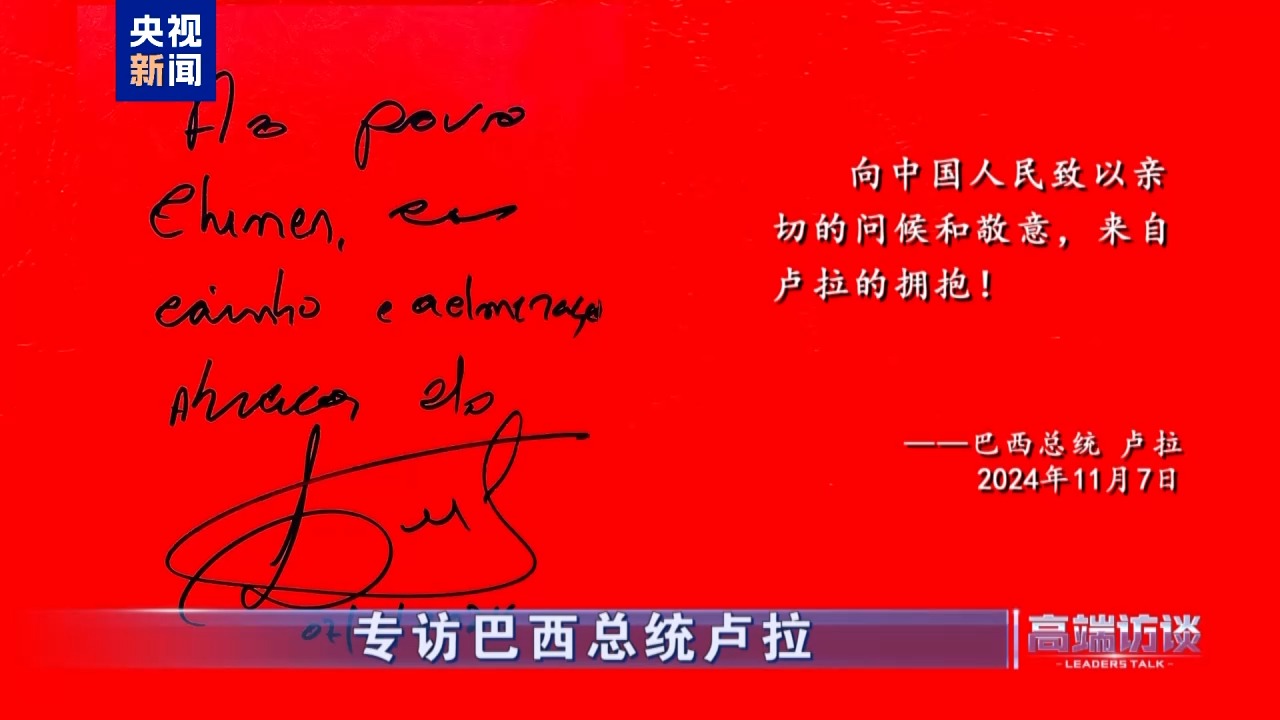 央视
新闻
Ao povo
chines, com
carinho e admiração
Abraços do
Lula
向中国人民致以亲
切的问候和敬意，来自
卢拉的拥抱！
——巴西总统 卢拉
2024年11月7日
专访巴西总统卢拉
高端访谈
-LEADERS TALK-